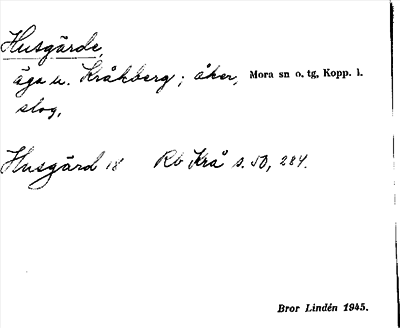 Husgärde,
äga u. Kråkberg; åker, Mora sn o. tg, Kopp. l.
slog,
Husgärd 18 Rb Krå s. 50, 284.
Bror Lindén 1945.